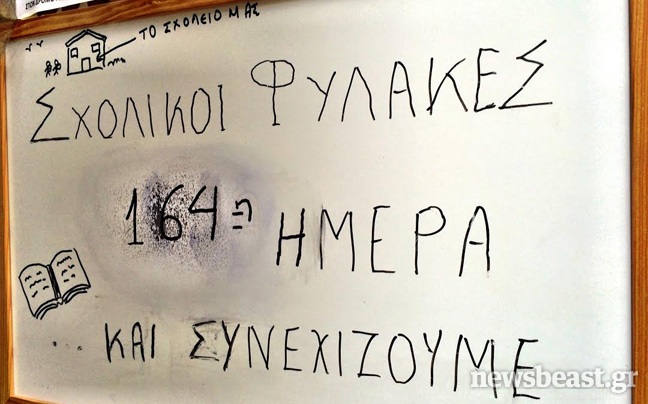 ΤΟ ΣΧΟΛΕΙΟ ΜΑΣ
ΣΧΟΛΙΚΟΙ ΦΥΛΑΚΕΣ
164η ΗΜΕΡΑ
... ΚΑΙ ΣΥΝΕΧΙΖΟΥΜΕ
newsbeast.gr